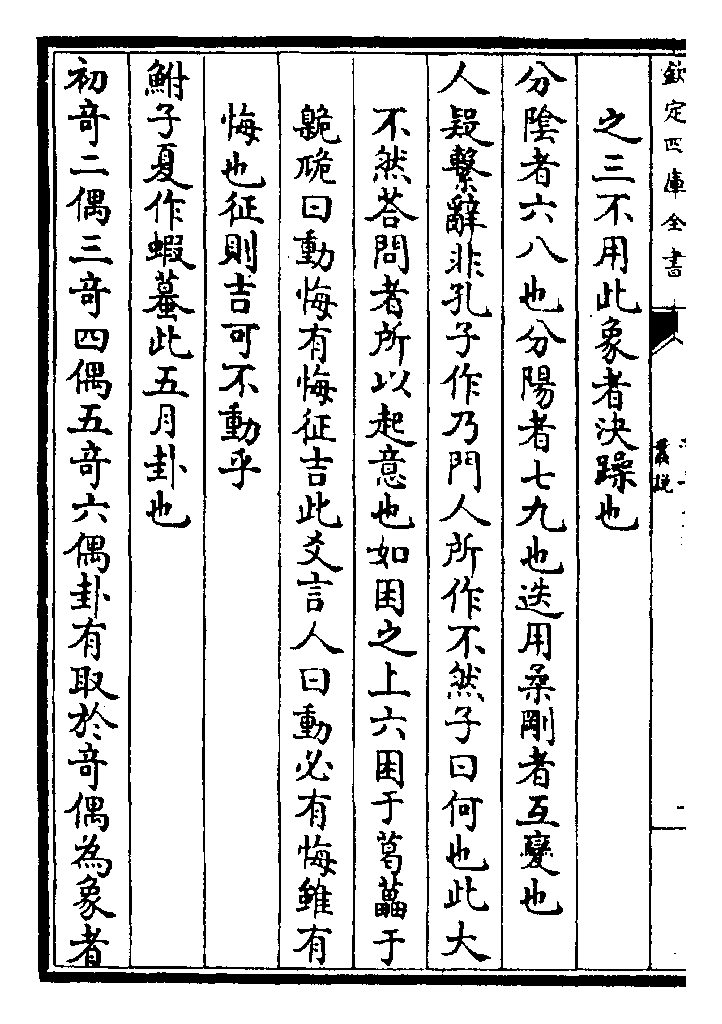 欽定四庫全書
叢説
之三不用此象者決躁也
分陰者六八也分陽者七九也迭用柔剛者互變也
人疑繫辭非孔子作乃門人所作不然子曰何也此大
不然荅問者所以起意也如困之上六困于葛藟于
臲卼曰動悔有悔征吉此爻言人曰動必有悔雖有
悔也征則吉可不動乎
鮒子夏作蝦蟇此五月卦也
初竒二偶三竒四偶五竒六偶卦有取於竒偶為象者